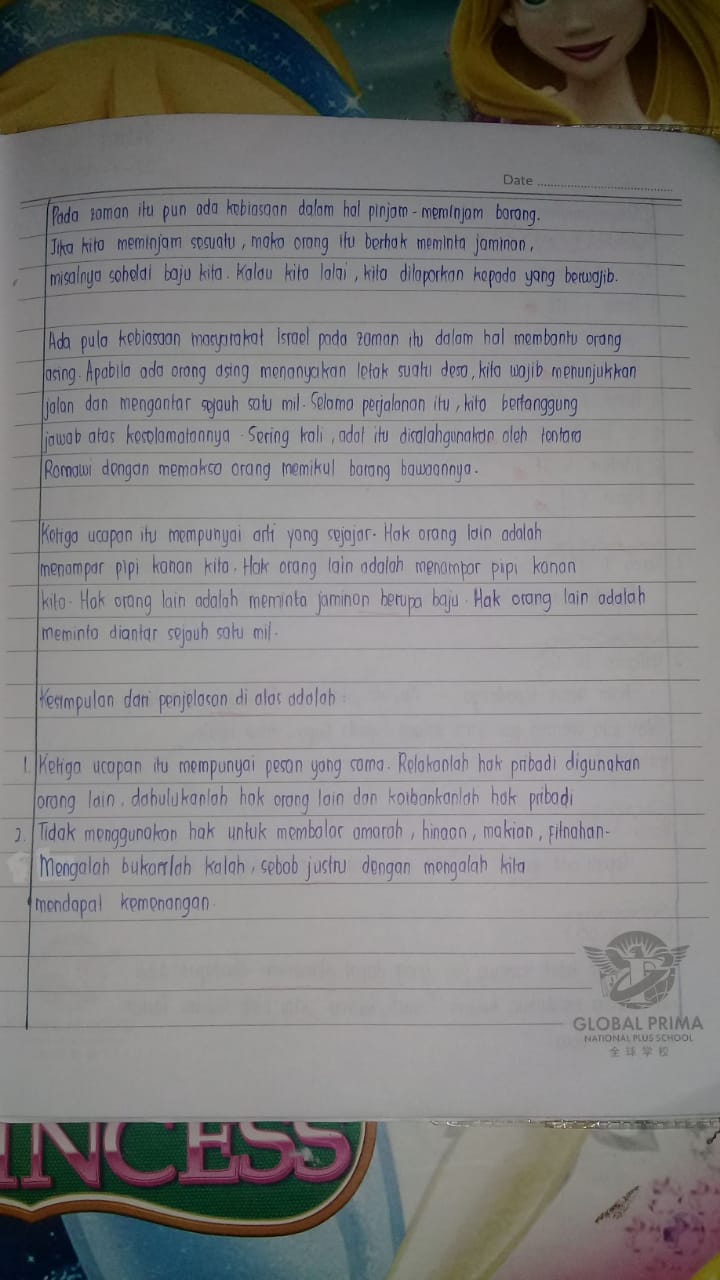 Date
Pada zaman itu pun ada kebiasaan dalam hal pinjam-meminjam barang.
Jika kita meminjam sesuatu, maka orang itu berhak meminta jaminan,
misalnya sehelai baju kita. Kalau kita lalai, kita dilaporkan kepada yang berwajib.
Ada pula kebiasaan masyarakat Israel pada zaman itu dalam hal membantu orang
asing. Apabila ada orang asing menanyakan letak suatu desa, kita wajib menunjukkan
jalan dan mengantar sejauh satu mil. Selama perjalanan itu, kita bertanggung
jawab atas keselamatannya. Sering kali, adat itu disalahgunakan oleh tentara
Romawi dengan memaksa orang memikul barang bawaannya.
Ketiga ucapan itu mempunyai arti yang sejajar. Hak orang lain adalah
menampar pipi kanan kita. Hak orang lain adalah menampar pipi kanan
kita. Hak orang lain adalah meminta jaminan berupa baju. Hak orang lain adalah
meminta diantar sejauh satu mil.
Kesimpulan dari penjelasan di atas adalah:
1. Ketiga ucapan itu mempunyai pesan yang sama. Relakanlah hak pribadi digunakan
orang lain, dahulukanlah hak orang lain dan korbankanlah hak pribadi
2. Tidak menggunakan hak untuk membalas amarah, hinaan, makian, fitnahan.
Mengalah bukanlah kalah, sebab justru dengan mengalah kita
mendapat kemenangan.
GLOBAL PRIMA
NATIONAL PLUS SCHOOL
全球学校
INCESS